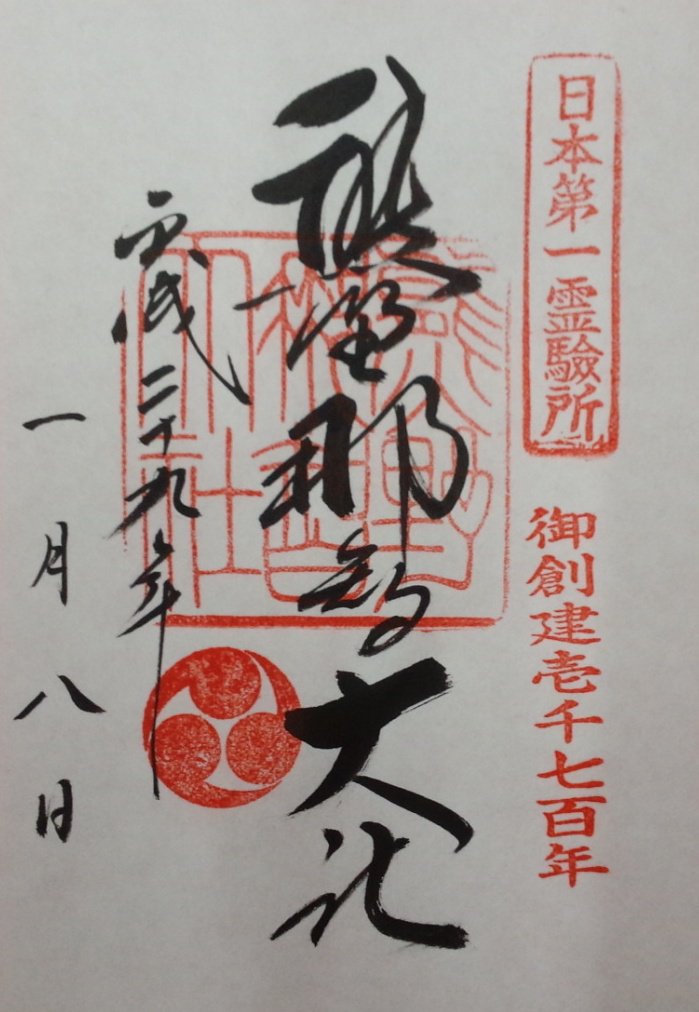 日本第一霊験所
御創建壱千七百年
熊野那智大社
平成二十九年
一月八日